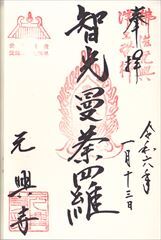 奉拝
智光曼荼羅
令和六年
一月十三日
元興寺